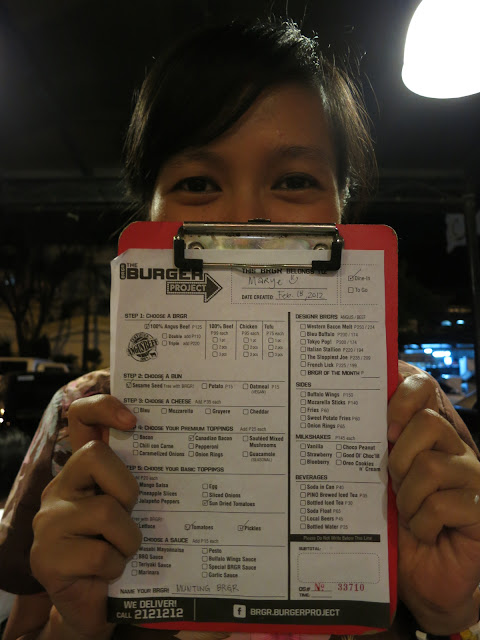 THE
BURGER
PROJECT
THIS BRGR BELONGS TO
Marye
DATE CREATED Feb. 18, 2012
Dine-In
To Go
STEP 1: CHOOSE A BRGR
100% Angus Beef P125
Double add P110
Triple add P200
100% Beef
Chicken
Tofu
STEP 2: CHOOSE A BUN
Sesame Seed Free with BRGR!
Potato P15
Oatmeal P15
STEP 3: CHOOSE A CHEESE Add P35 each
Bleu
Mozzarella
Gruyere
Cheddar
STEP 4: CHOOSE YOUR PREMIUM TOPPINGS
Bacon
Chili con Carne
Caramelized Onions
Canadian Bacon
Pepperoni
Onion Rings
Sautéed Mixed
Mushrooms
Guacamole
(SEASONAL)
STEP 5: CHOOSE YOUR BASIC TOPPINGS
Mango Salsa
Pineapple Slices
Jalapeño Peppers
Egg
Sliced Onions
Sun Dried Tomatoes
Lettuce
Tomatoes
Pickles
CHOOSE A SAUCE
Wasabi Mayonnaise
BBQ Sauce
Teriyaki Sauce
Marinara
Pesto
Buffalo Wings Sauce
Special BRGR Sauce
Garlic Sauce
NAME YOUR BRGR: MUNTING BRGR
DESIGNR BRGRS ANGUS / BEEF
Western Bacon Melt
Bleu Buffalo
Tokyo Pogi
Italian Stallion
The Sloppiest Joe
French Lick
BRGR OF THE MONTH
SIDES
Buffalo Wings
Mozzarella Sticks
Fries
Sweet Potato Fries
Onion Rings
MILKSHAKES P145 each
Vanilla
Strawberry
Blueberry
Choco Peanut
Good Ol' Choc'lit
Oreo Cookies
N' Cream
BEVERAGES
Soda in Can
PINO Brewed Iced Tea
Bottled Iced Tea
Soda Float
Local Beers
Bottled Water
Please Do Not Write Below This Line
SUBTOTAL
OS# No 33710
TIME
WE DELIVER!
CALL 2121212
f BRGR.BURGERPROJECT